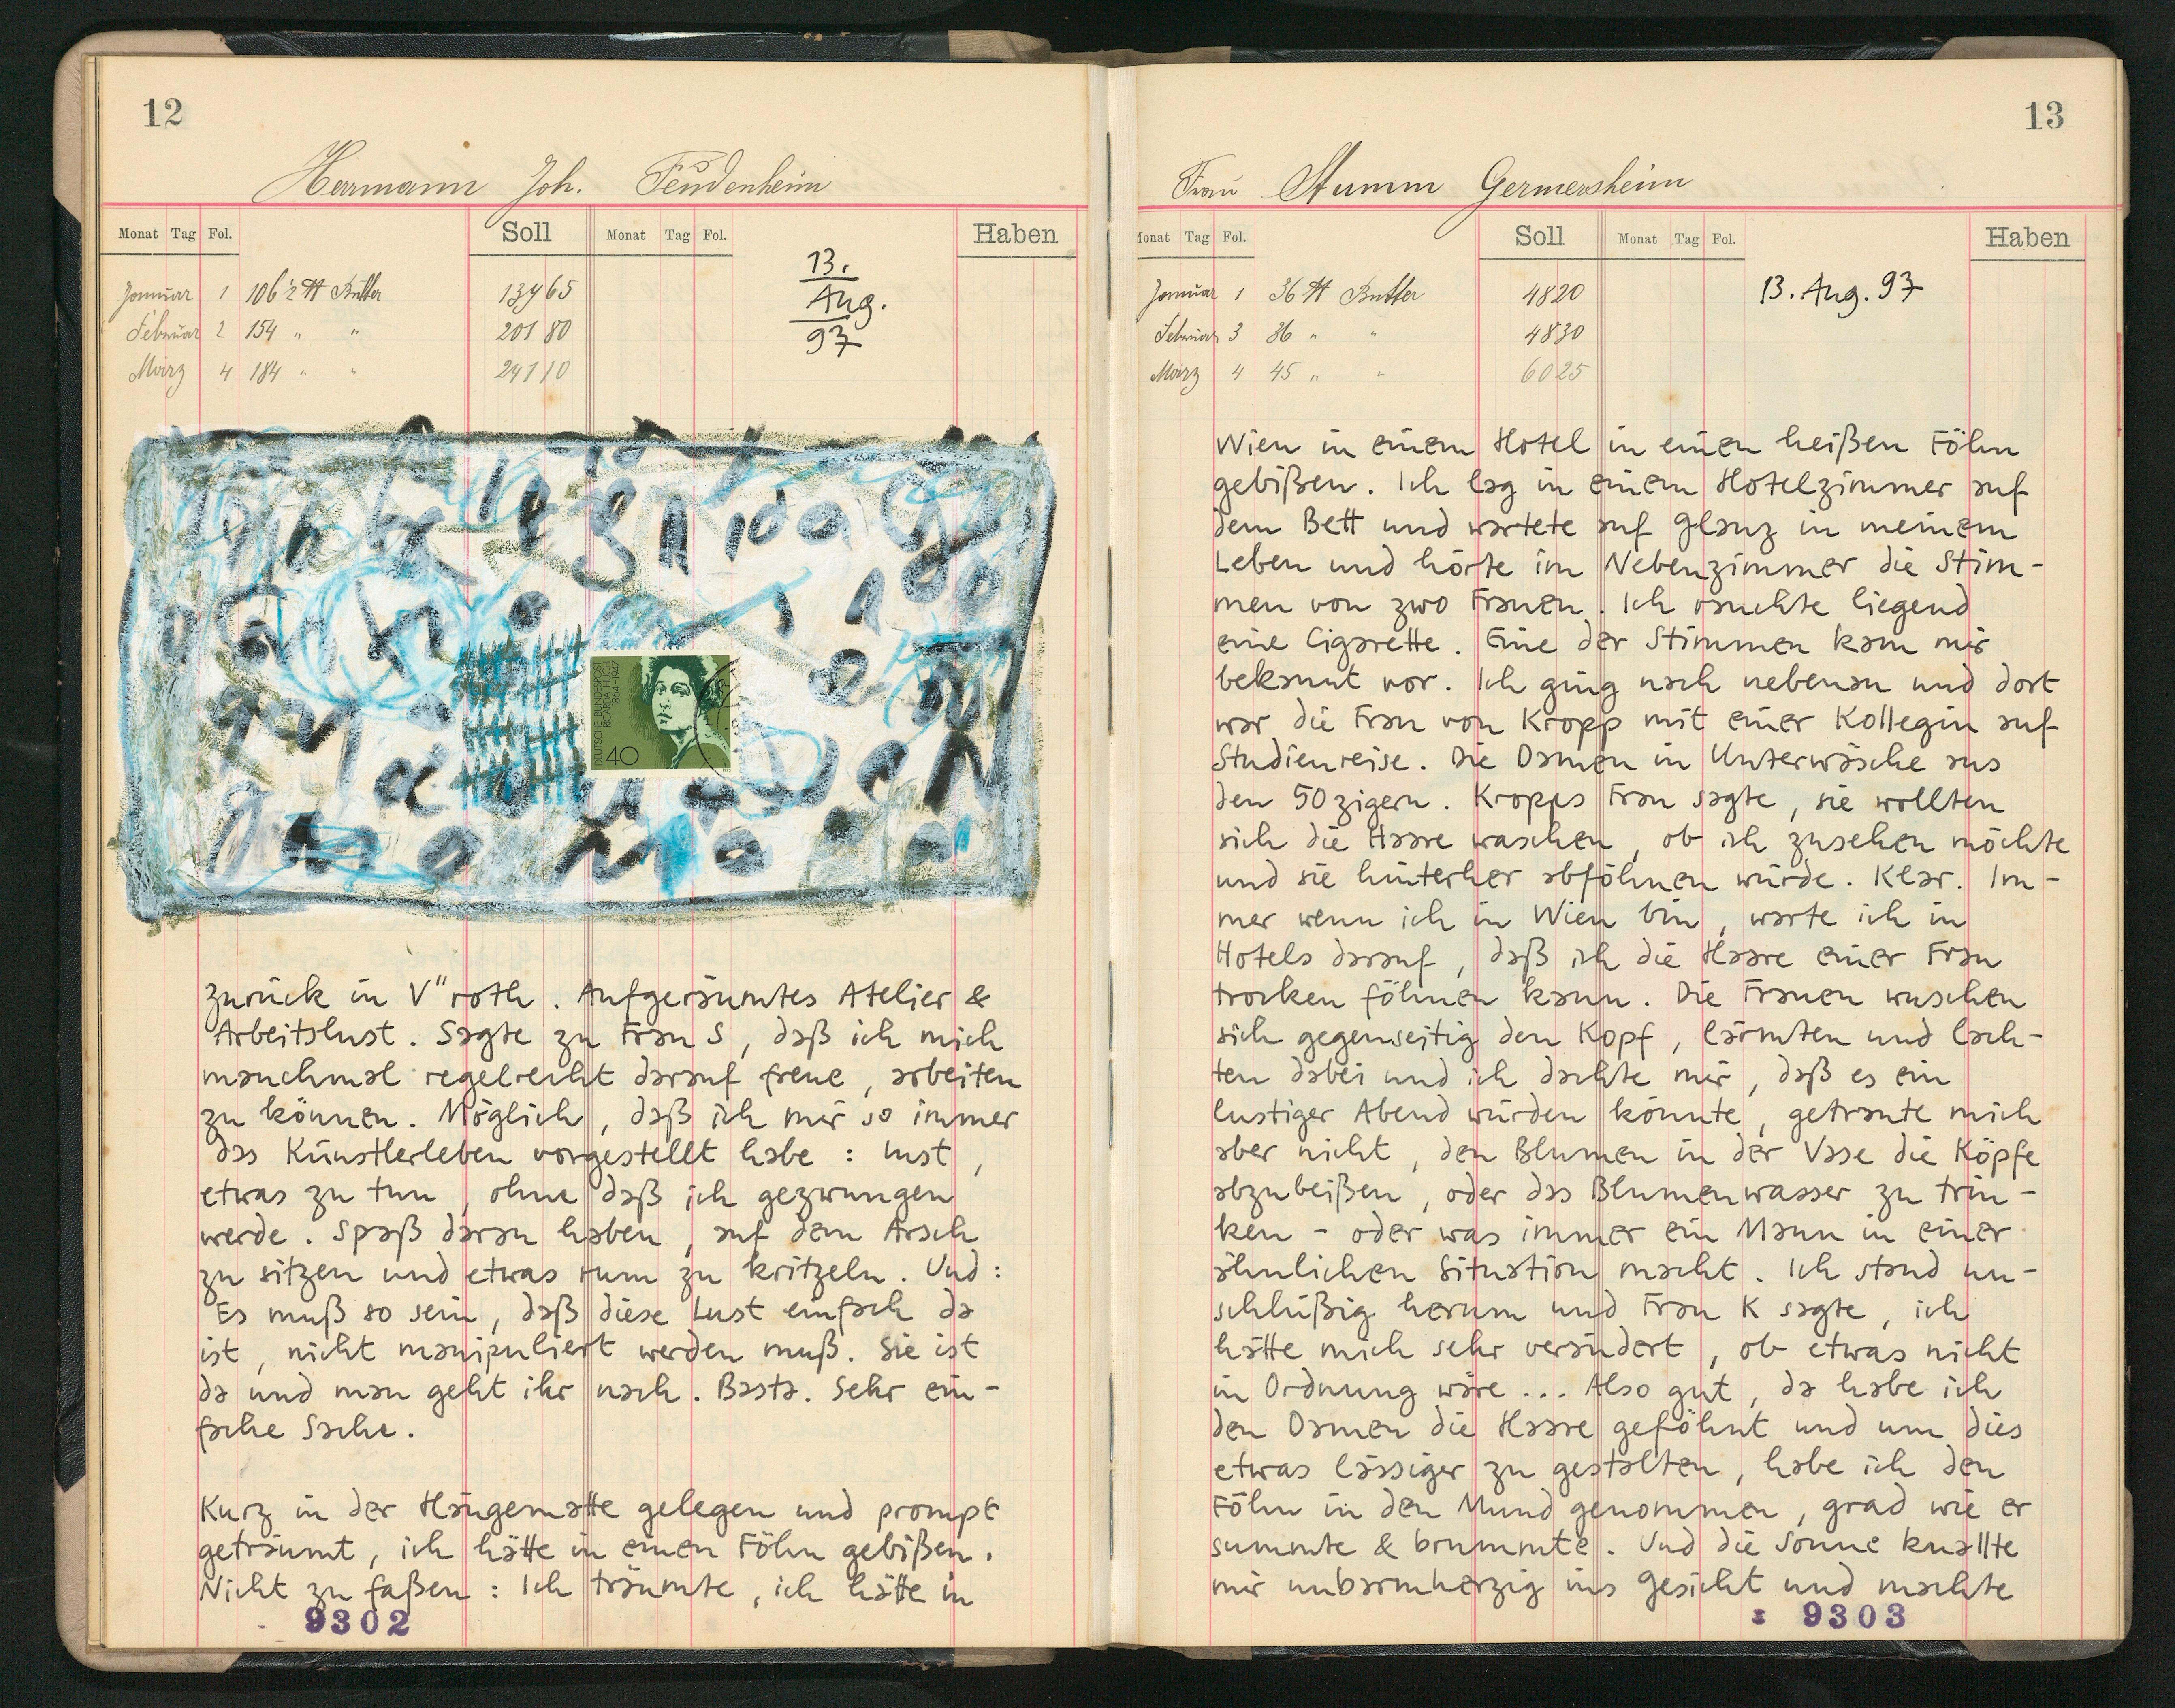 12
Herrmann Joh. Feudenheim
Monat Tag Fol. Soll Monat Tag Fol. Haben
Januar 1 106 1/2 ℔ Butter 139 65
Februar 2 154 " " 201 80
März 4 184 " " 241 10
13.
Aug.
97
DEUTSCHE BUNDESPOST
RICARDA HUCH
1864-1947
40
zurück in V"roth. Aufgeräumtes Atelier &
Arbeitslust. Sagte zu Frau S, daß ich mich
manchmal regelrecht darauf freue, arbeiten
zu können. Möglich, daß ich mir so immer
das Künstlerleben vorgestellt habe: Lust,
etwas zu tun, ohne daß ich gezwungen
werde. Spaß daran haben, auf dem Arsch
zu sitzen und etwas rum zu kritzeln. Und:
Es muß so sein, daß diese Lust einfach da
ist, nicht manipuliert werden muß. Sie ist
da und man geht ihr nach. Basta. Sehr ein-
fache Sache.
Kurz in der Hängematte gelegen und prompt
geträumt, ich hätte in einen Föhn gebißen.
Nicht zu faßen: Ich träumte, ich hätte in
9302
13
Frau Stumm Germersheim
Monat Tag Fol. Soll Monat Tag Fol. Haben
Januar 1 36 ℔ Butter 48 20
Februar 3 36 " " 48 30
März 4 45 " " 60 25
13. Aug. 97
Wien in einem Hotel in einen heißen Föhn
gebißen. Ich lag in einem Hotelzimmer auf
dem Bett und wartete auf Glanz in meinem
Leben und hörte im Nebenzimmer die Stim-
men von zwo Frauen. Ich rauchte liegend
eine Cigarette. Eine der Stimmen kam mir
bekannt vor. Ich ging nach nebenan und dort
war die Frau von Kropp mit einer Kollegin auf
Studienreise. Die Damen in Unterwäsche aus
den 50zigern. Kropps Frau sagte, sie wollten
sich die Haare waschen, ob ich zusehen möchte
und sie hinterher abföhnen würde. Klar. Im-
mer wenn ich in Wien bin, warte ich in
Hotels darauf, daß ich die Haare einer Frau
trocken föhnen kann. Die Frauen wuschen
sich gegenseitig den Kopf, lärmten und lach-
ten dabei und ich dachte mir, daß es ein
lustiger Abend würden könnte, getraute mich
aber nicht, den Blumen in der Vase die Köpfe
abzubeißen, oder das Blumenwasser zu trin-
ken - oder was immer ein Mann in einer
ähnlichen Situation macht. Ich stand un-
schlüßig herum und Frau K sagte, ich
hätte mich sehr verändert, ob etwas nicht
in Ordnung wäre... Also gut, da habe ich
den Damen die Haare geföhnt und um dies
etwas lässiger zu gestalten, habe ich den
Föhn in den Mund genommen, grad wie er
summte & brummte. Und die Sonne knallte
mir unbarmherzig ins Gesicht und machte
9303